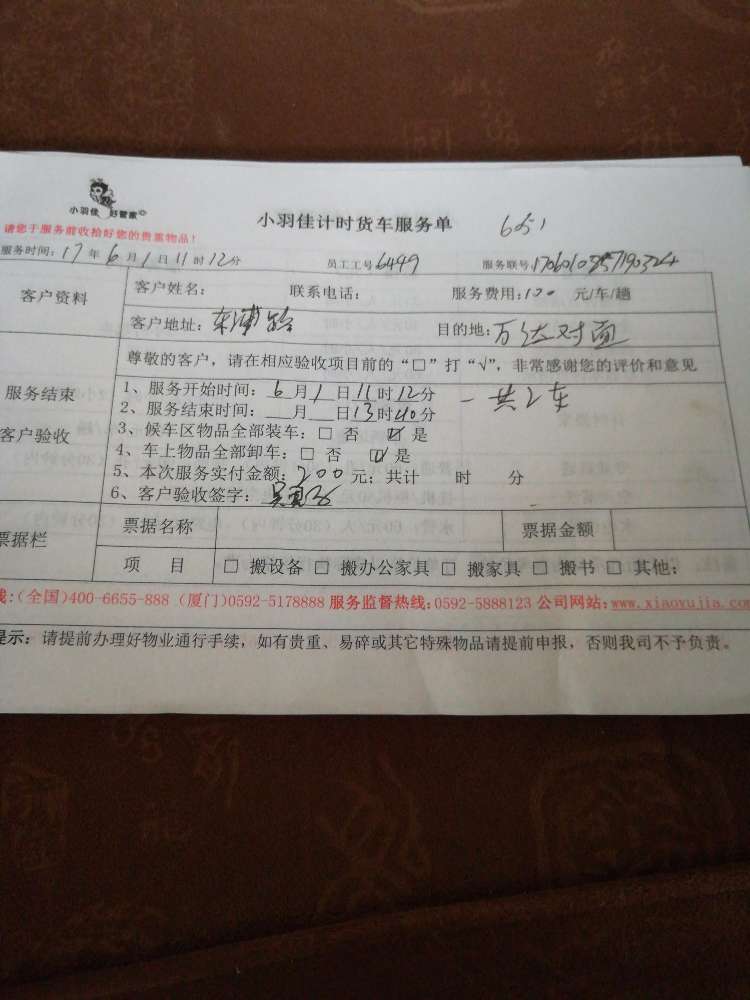 小羽佳 好管家
小羽佳计时货车服务单 6051
请您于服务前收拾好您的贵重物品!
服务时间: 17 年 6 月 1 日 11 时 12 分 员工工号 6499 服务联号
客户资料
客户姓名: 联系电话: 服务费用: 100 元/车/趟
客户地址: 东浦路 目的地: 万达对面
尊敬的客户,请在相应验收项目前的“□”打“√”,非常感谢您的评价和意见
服务结束
客户验收
1、服务开始时间: 6 月 1 日 11 时 12 分 一共2车
2、服务结束时间: 月 日 13 时 40 分
3、候车区物品全部装车: □ 否 ☑ 是
4、车上物品全部卸车: □ 否 ☑ 是
5、本次服务实付金额: 200 元; 共计 时 分
6、客户验收签字:
票据栏
票据名称 票据金额
项 目 □ 搬设备 □ 搬办公家具 □ 搬家具 □ 搬书 □ 其他:
线:(全国)400-6655-888 (厦门)0592-5178888 服务监督热线:0592-5888123 公司网站: www.xiaoyujia.com
提示: 请提前办理好物业通行手续,如有贵重、易碎或其它特殊物品请提前申报,否则我司不予负责。